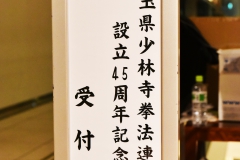 玉県少林寺拳法連
設立45周年記念
受付